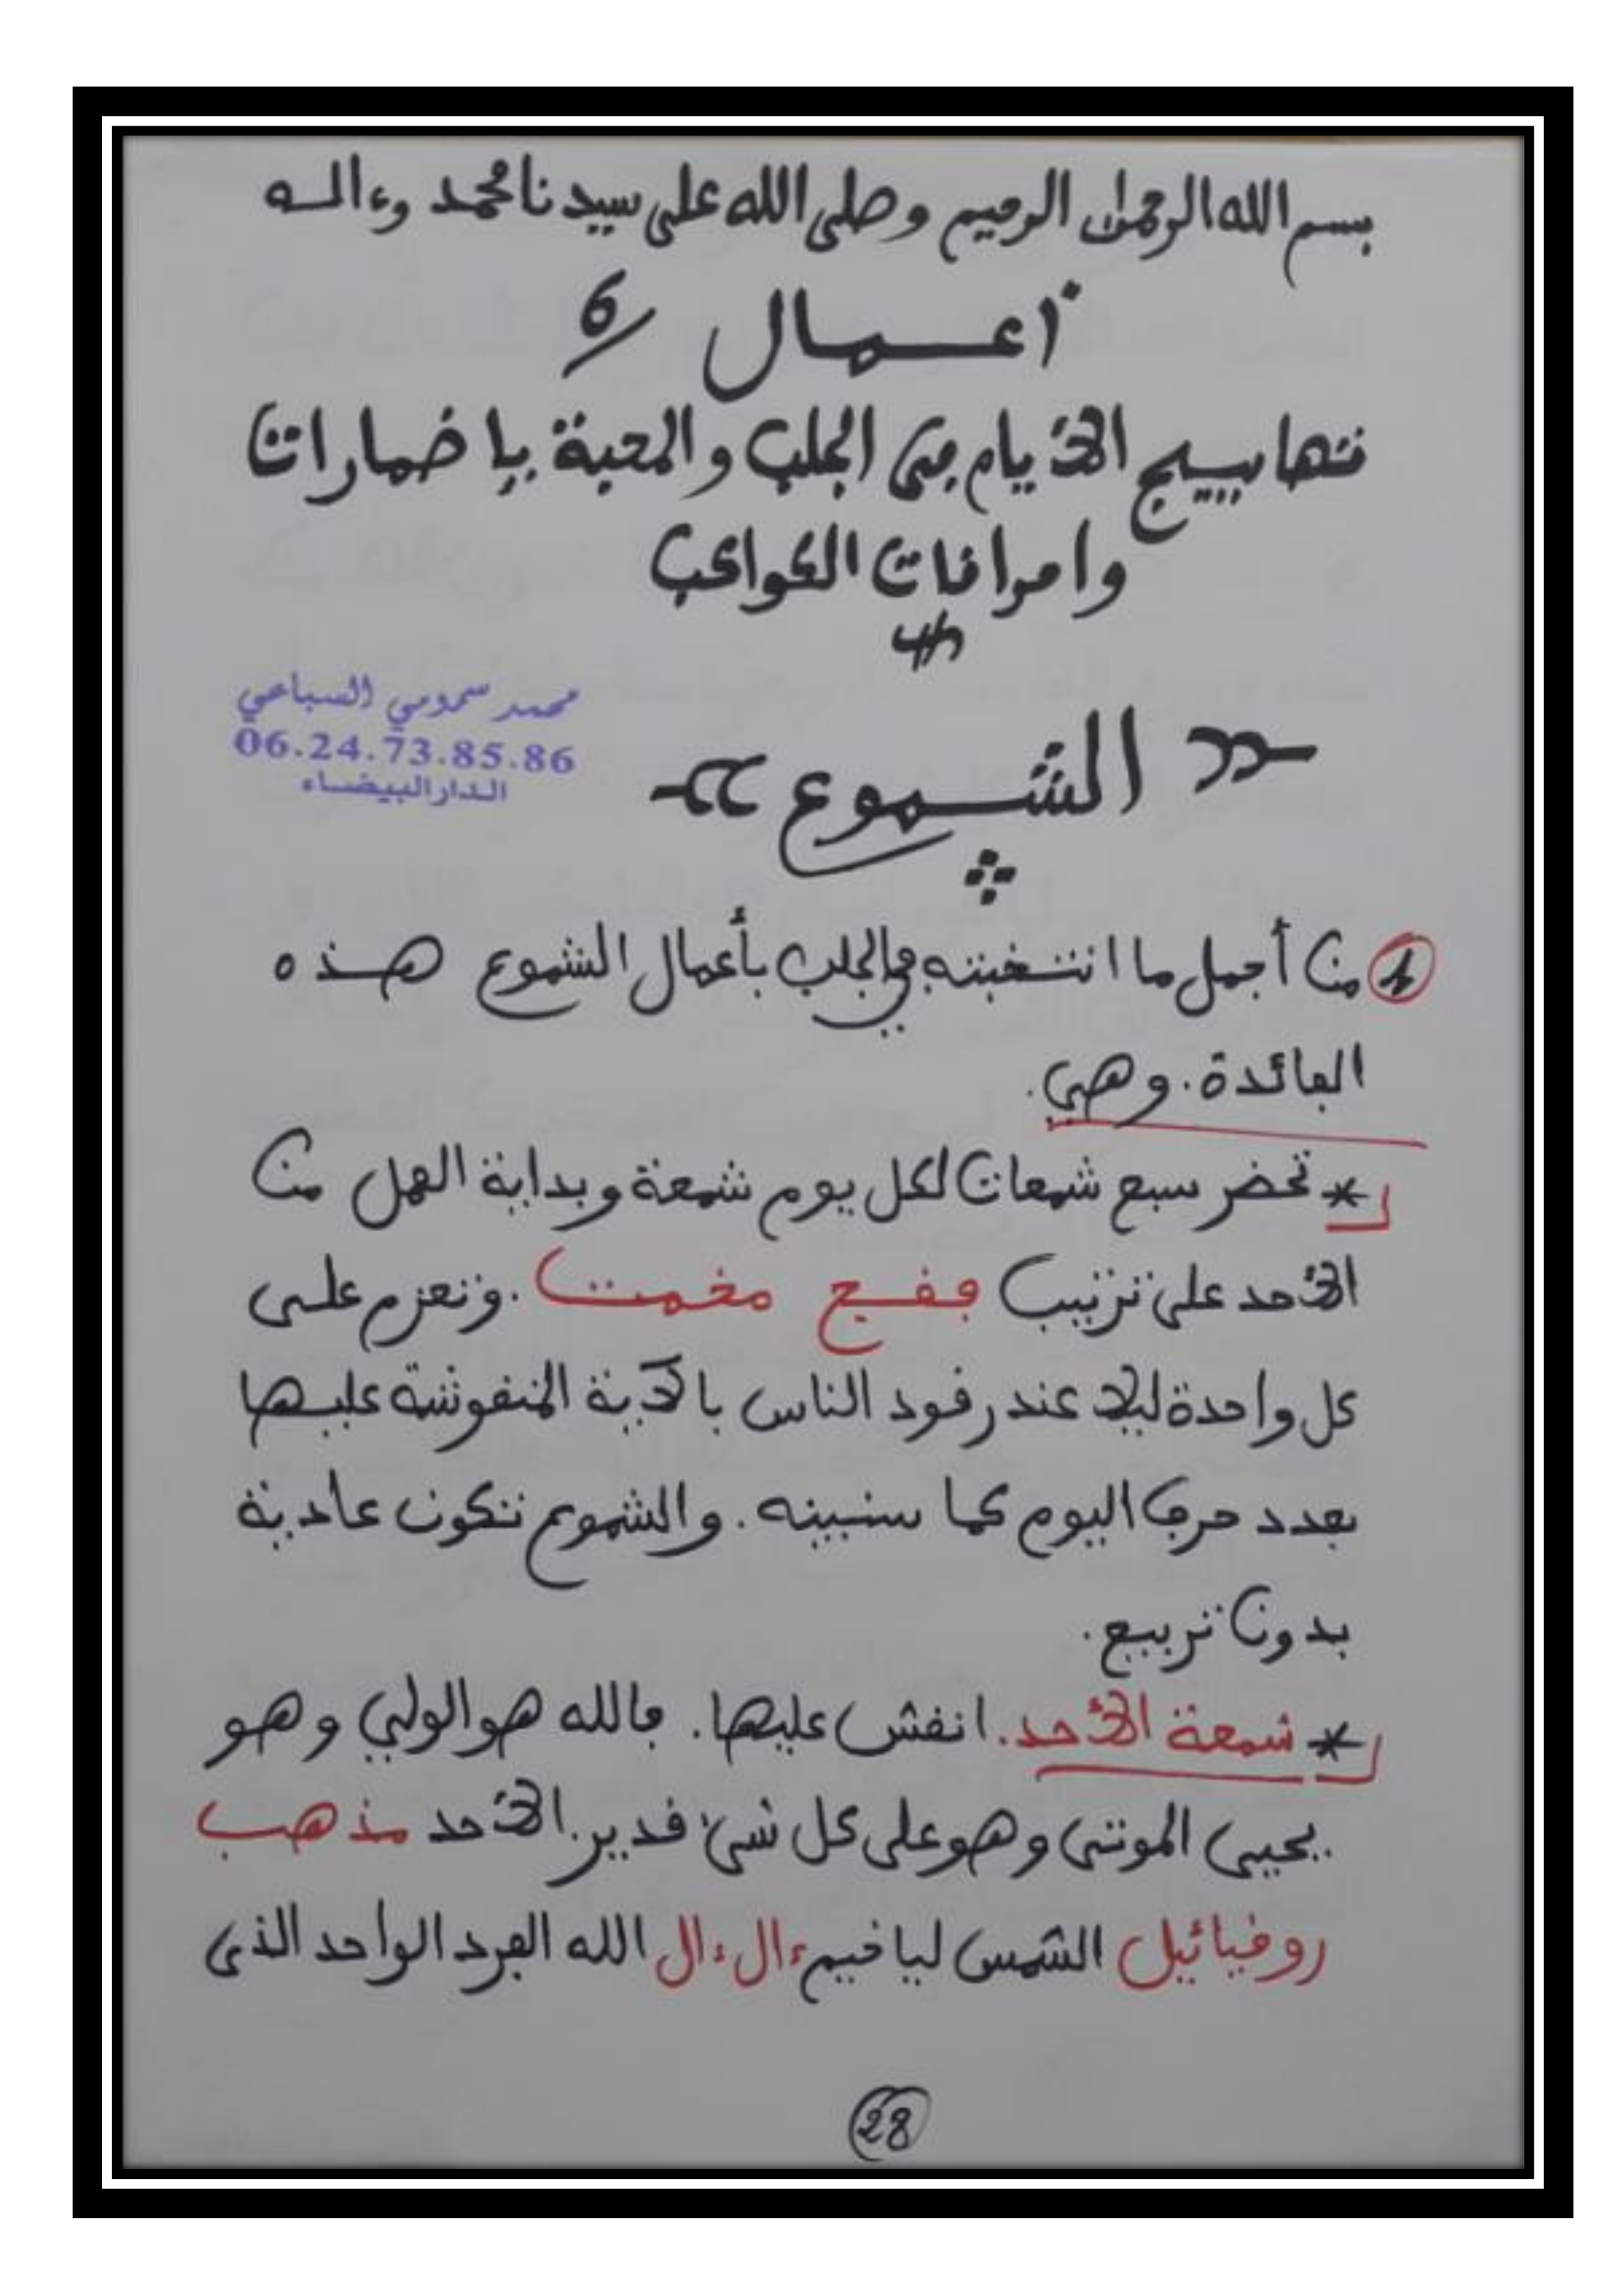 بسم الله الرحمن الرحيم وصلى الله على سيدنا محمد وءاله
أعمال 6
تهاييج الأيام في الجلب والمحبة بإضمارات
واحراقات الكواكب
محمد سمومي السباعي
06.24.73.85.86
الدار البيضاء
الشموع
1 من أجمل ما انتخبته في الجلب بأعمال الشموع هذه
الفائدة. وهي.
* تحضر سبع شمعات لكل يوم شمعة وبداية العمل من
الأحد على ترتيب . وتعزم على
كل واحدة ليلا عند رقود الناس بالآية المنقوشة عليها
بعدد حرف اليوم كما سنبينه. والشموع تكون عادية
بدون تربيع.
* شمعة الأحد. انقش عليها. فالله هو الولي وهو
يحيي الموتى وهو على كل شيء قدير. الأحد مذهب
روقيائيل الشمس لياخيم ءال ءال الله الفرد الواحد الذي
28